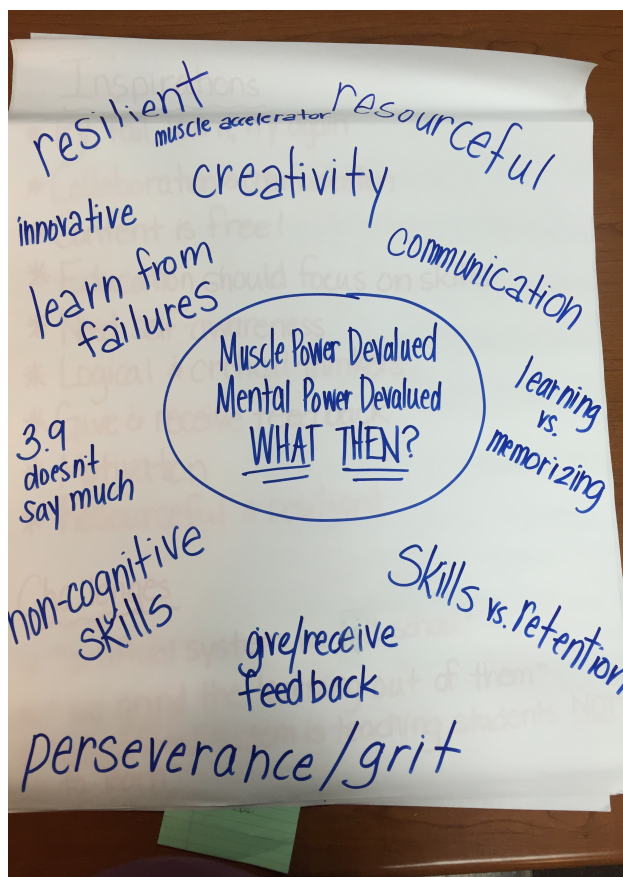 resilient
muscle accelerator
resourceful
creativity
innovative
communication
learn from
failures
Muscle Power Devalued
Mental Power Devalued
WHAT THEN?
learning
vs.
memorizing
3.9
doesn't
say much
non-cognitive
skills
Skills vs. retention
give/receive
feedback
perseverance/grit
Inspirations